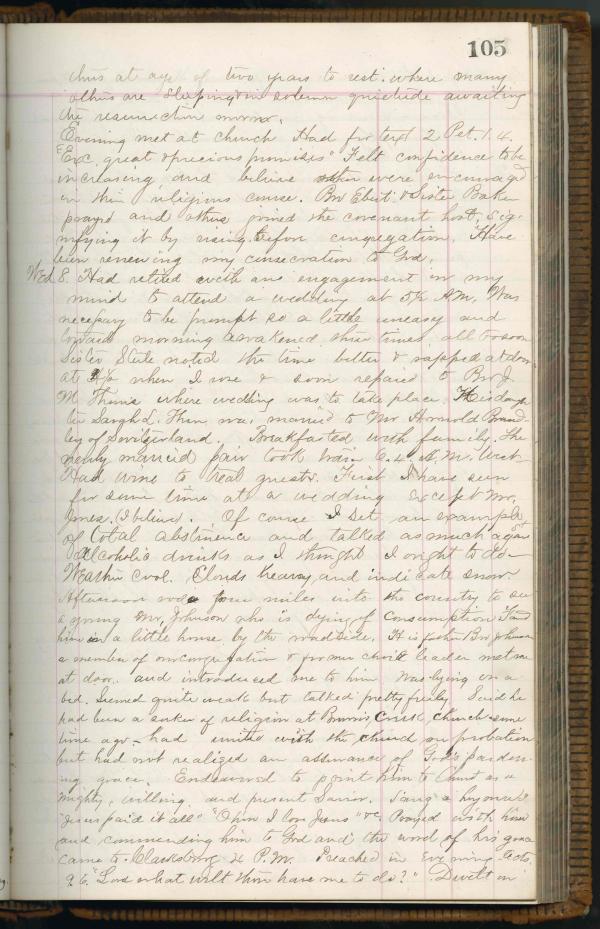 105
thus at age of two years to rest. where many
others are sleeping in solemn quietude awaiting
the resurrection morrow.
Evening met at church Had for text 2 Pet. 1.4.
"Exc. great & precious promises" Felt confidence to be
increasing and believe others were encouraged
in this religious course. Bro Ebert & Sister Baker
prayed and others joined the covenant host, sig-
nifying it by rising before congregation. Have
been renewing my consecration to God.
Wed 8. Had retired with an engagement on my
mind to attend a wedding at 5½ A.M. Was
necessary to be prompt so a little uneasy and
toward morning awakened three times, all too soon
Sister Stute noted the time better & rapped at door
at 4½ when I rose & soon repaired to Bro J.
M Thums where wedding was to take place. His daugh-
ter Sarah L. Thum was married to Mr Arnold Brand-
ley of Switzerland. Breakfasted with family. The
newly married pair took train 6.4. A.M. West-
Had wine to treat guests. First I have seen
for some time at a wedding except Mr.
Jones. (I believe). Of course I set an example
of total abstinence and talked as much against
Alcoholic drinks as I thought I ought to do-
Weather cool. Clouds heavy and indicate snow.
Afternoon rode four miles into the country to see
a young Mr. Johnson who is dying of consumption Found
him in a little house by the roadside. His father Bro Johnson
a member of our congregation & former choir leader met me
at door. and introduced me to him Was lying on a
bed. Seemed quite weak but talked pretty freely. Said he
had been a seeker of religion at Brown's Creek Church some
time ago - had united with the church on probation
but had not realized an assurance of God's pardon-
ing grace. Endeavored to point him to Christ as a
mighty, willing, and present Savior. Sang a hymn or 2
"Jesus paid it all" "O how I love Jesus" &c. Prayed with him
and commending him to God and the word of his grace
came to Clarksburg 4 P.M. Preached in evening Acts,
9.6. "Lord what wilt thou have me to do?" Dwelt on